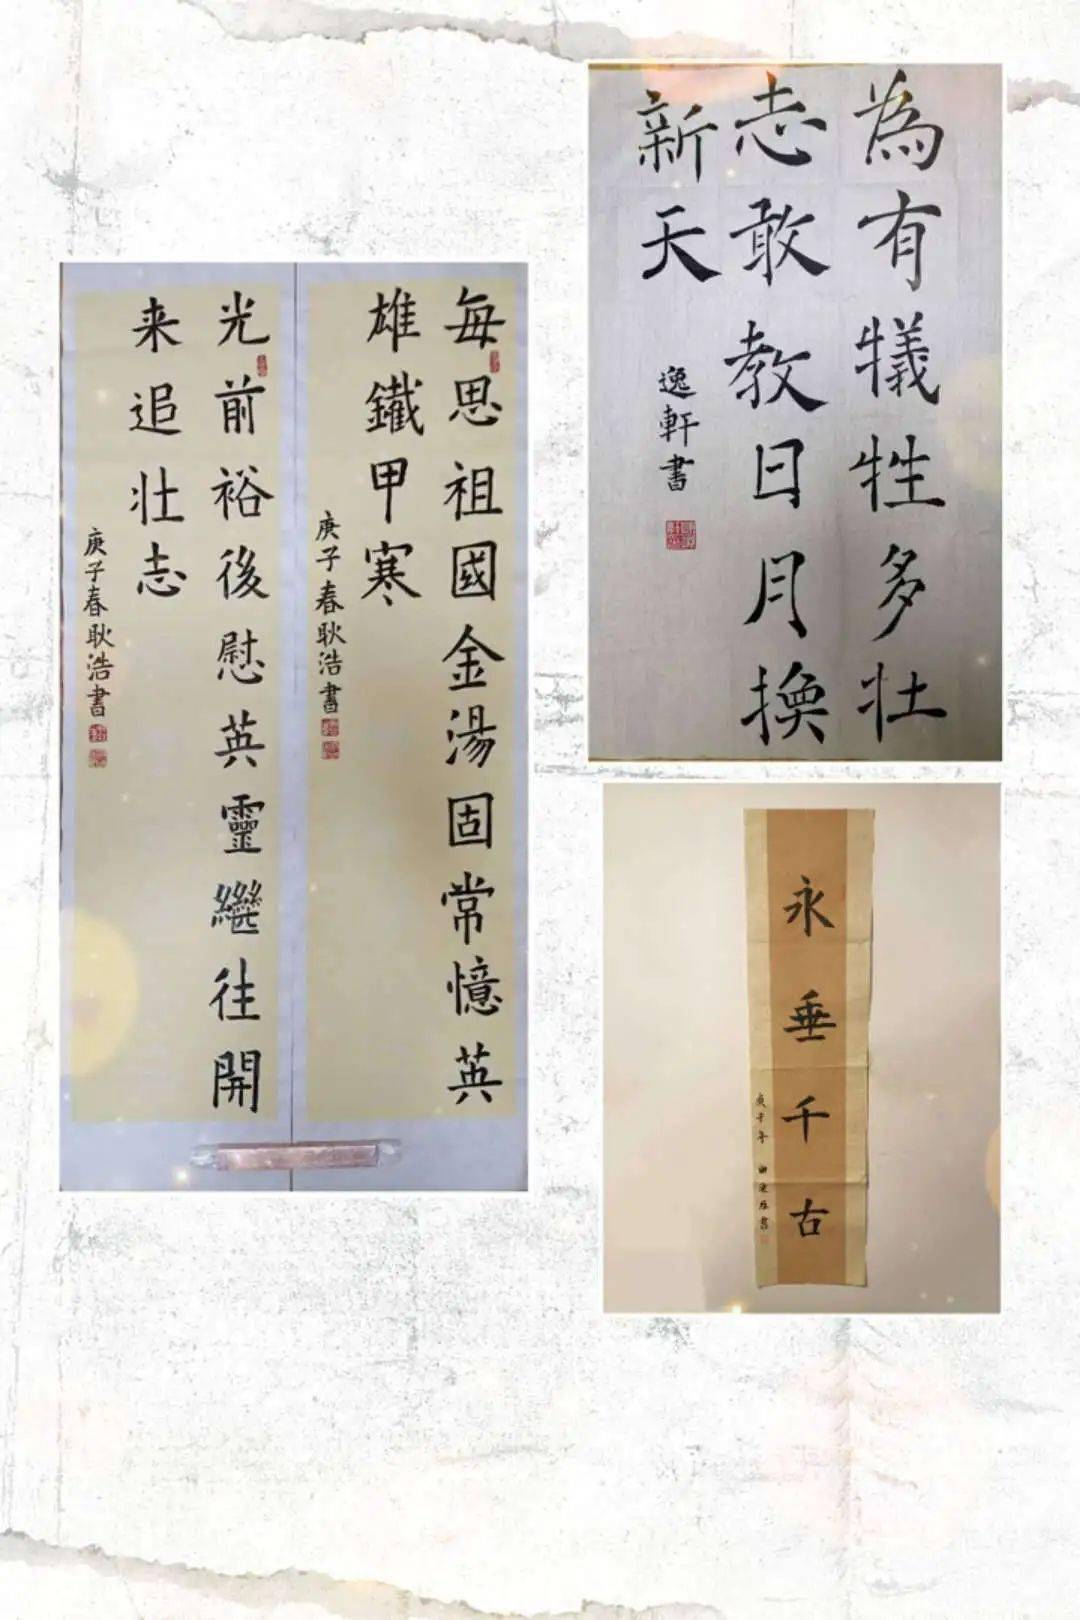 每思祖國金湯固常憶英
雄鐵甲寒
庚子春耿浩書
光前裕後慰英靈繼往開
来追壮志
庚子春耿浩書
為有犧牲多壮
志敢教日月換
新天
逸軒書
永垂千古
庚子年
書